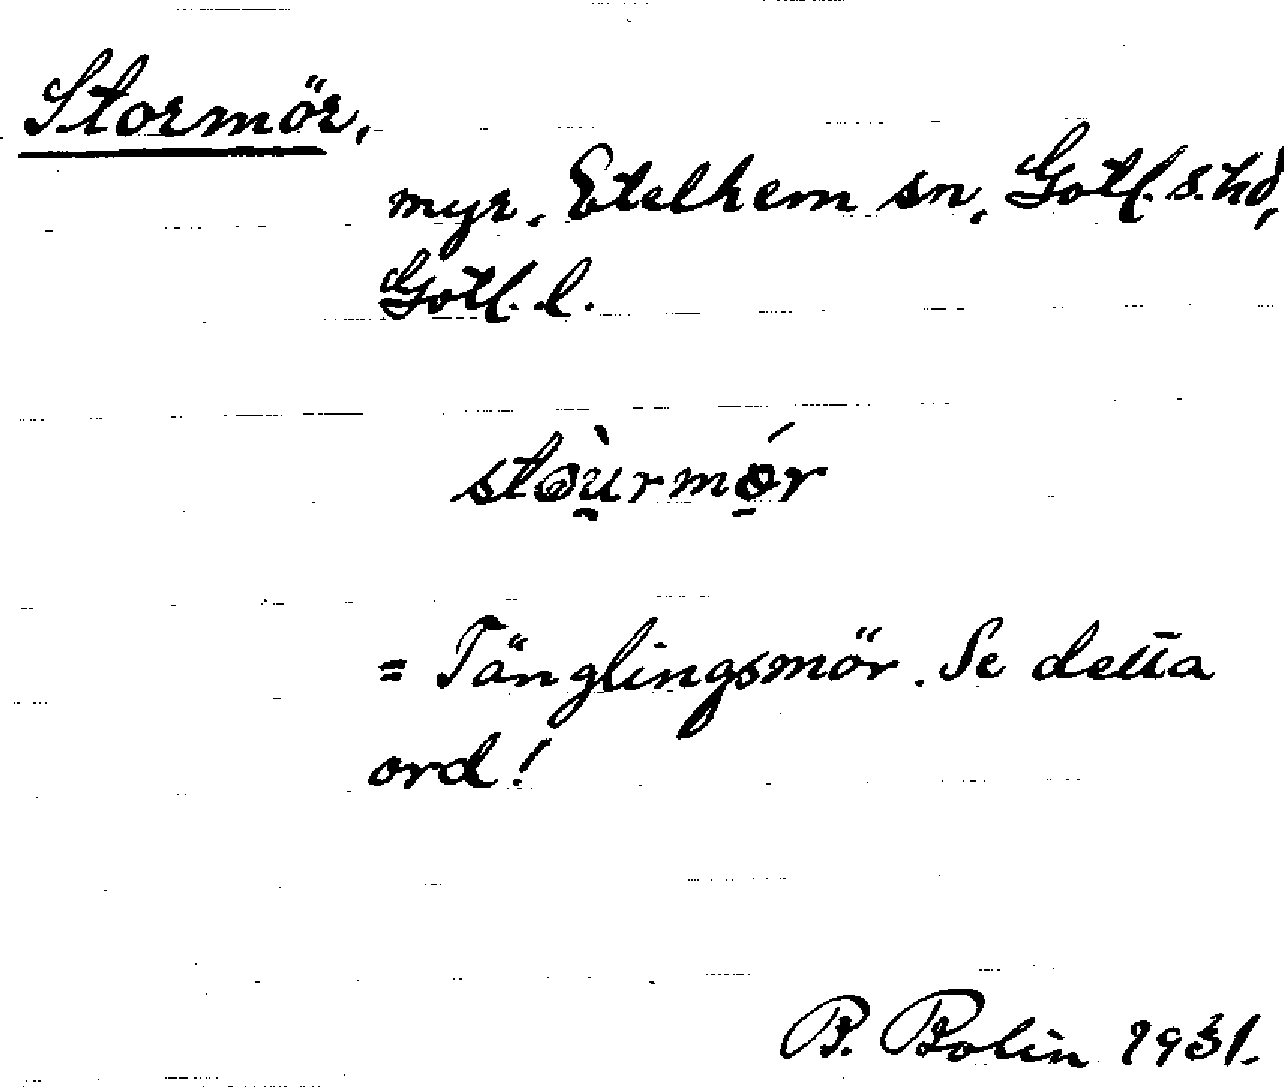 Stormör,
myr, Etelhem sn, Gotl. s. hd,
Gotl. l.
= Tänglingsmör. Se detta
ord!
B. Bolin 1931.